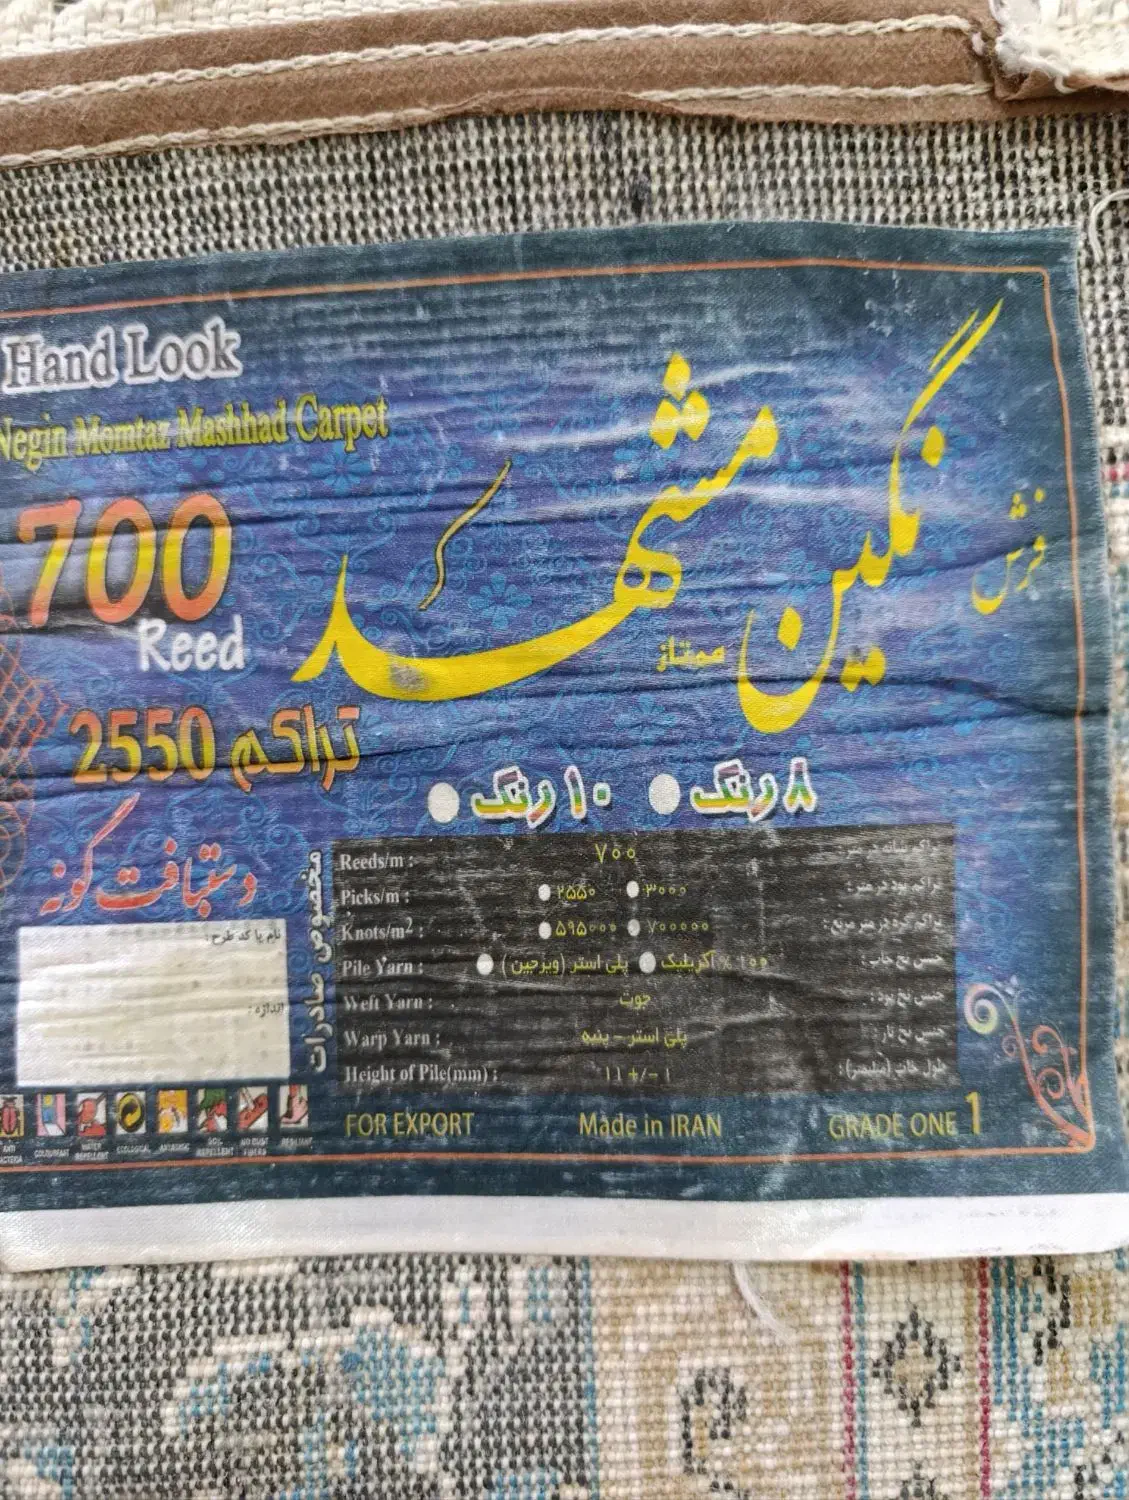 Hand Look
Negin Momtaz Mashhad Carpet
فرش
نگین مشهد
ممتاز
700
Reed
تراکم 2550
دستبافت گونه
۸ رنگ
۱۰ رنگ
مخصوص صادرات
نام یا کد طرح:
اندازه:
Reeds/m : ۷۰۰ تراکم شانه در متر:
Picks/m : ۲۵۵۰ ۳۰۰۰ تراکم پود در متر:
Knots/m² : ۵۹۵۰۰۰ ۷۰۰۰۰۰ تراکم گره در متر مربع:
Pile Yarn : پلی استر (ویرجین) ۱۰۰ % آکریلیک جنس نخ خاب:
Weft Yarn : جوت جنس نخ پود:
Warp Yarn : پلی استر - پنبه جنس نخ تار:
Height of Pile(mm) : ۱۱ +/- ۱ طول خاب (میلیمتر):
ANTI BACTERIA
COLOURFAST
WATER REPELLENT
ECOLOGICAL
SOIL REPELLENT
NO DUST FIBERS
RESILIANT
FOR EXPORT Made in IRAN GRADE ONE 1